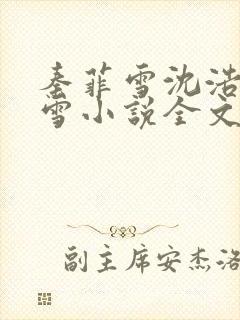 秦菲雪沈浩
雪小说全文
副主席安杰洛